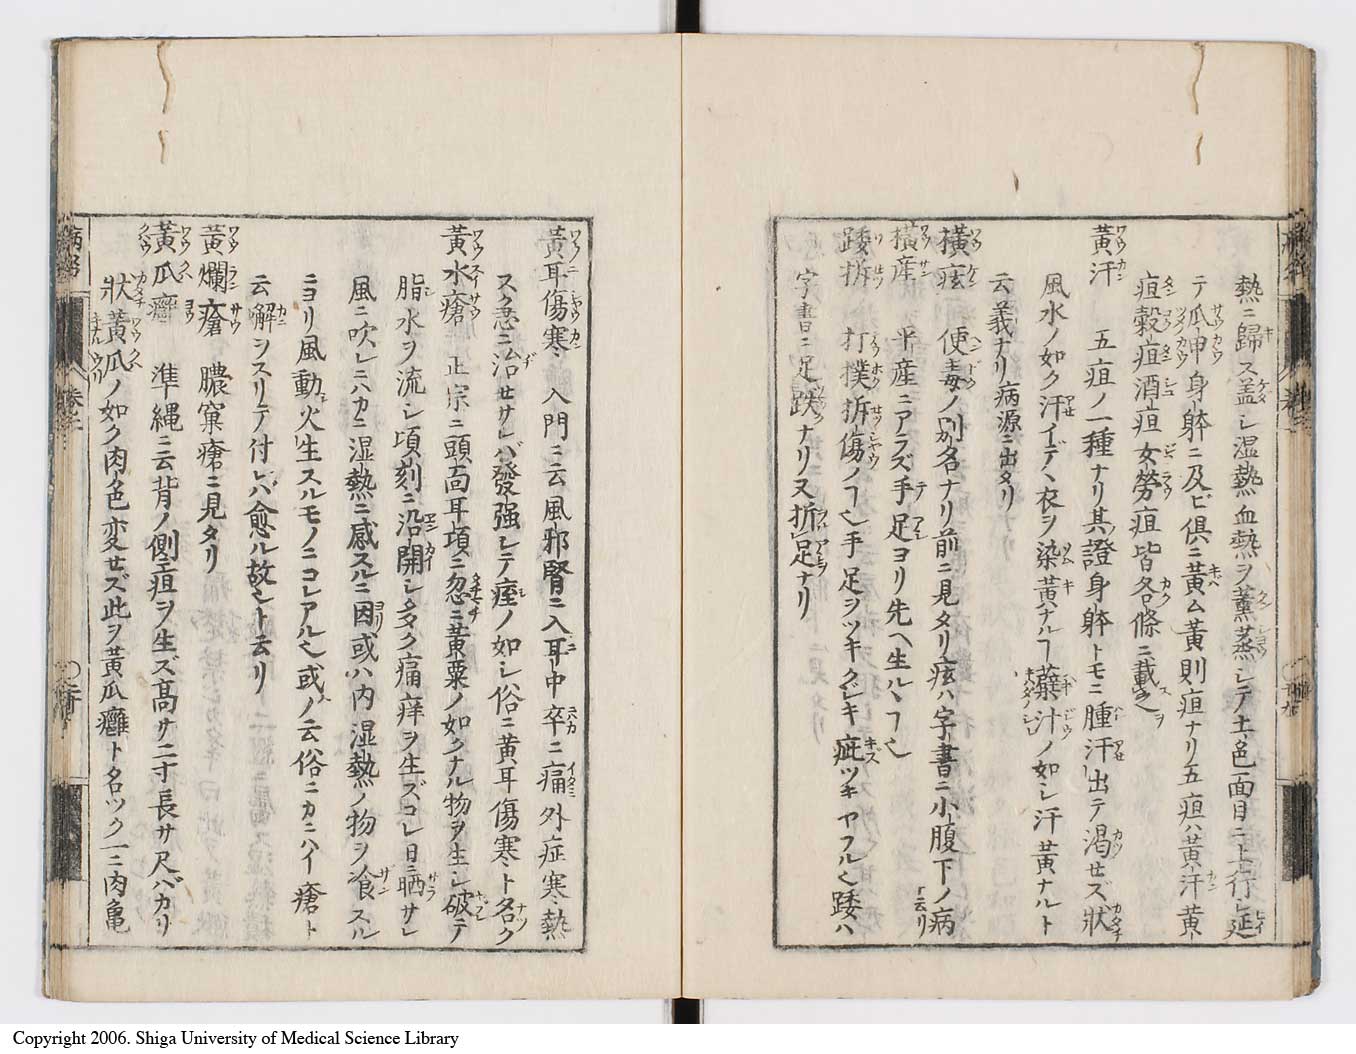 熱ニ歸ス盖シ湿熱血熱ヲ薫蒸シテ土色面目ニ上行シ延
テ爪甲身躰ニ及ビ倶ニ黄ム黄則疸ナリ五疸ハ黄汗黄ト
疸穀疸酒疸女勞疸皆各條ニ載之
黄汗 五疸ノ一種ナリ其證身躰トモニ腫汗出テ渇セズ狀
風水ノ如ク汗イデテ衣ヲ染黄ナルヿ蘗汁ノ如シ汗黄ナルト
云義ナリ病源ニ出タリ
横痃 便毒ノ別名ナリ前ニ見タリ痃ハ字書ニ小腹下ノ病ト云リ
横産 平産ニアラズ手足ヨリ先ヘ生ルヽヿ也
踒折 打撲折傷ノヿ也手足ヲツキクジキ疵ツキヤフル也踒ハ
字書ニ足跌ナリ又折足ナリ
黄耳傷寒 入門ニ云風邪腎ニ入耳中卒ニ痛外症寒熱
スク急ニ治セサレバ發强シテ痙ノ如シ俗ニ黄耳傷寒ト名ク
黄水瘡 正宗ニ頭面耳項ニ忽ニ黄粟ノ如クナル物ヲ生シ破テ
脂水ヲ流シ頃刻ニ沿開シ多ク痛痒ヲ生ズコレ日ニ晒サレ
風ニ吹レニハカニ湿熱ニ感スルニ因或ハ内湿熱ノ物ヲ飡スル
ニヨリ風動火生スルモノニコレアル也或ノ云俗ニカニハイ瘡ト
云解ヲスリテ付レバ愈ル故也ト云リ
黄爛瘡 膿窠瘡ニ見タリ
黄瓜癰 準縄ニ云背ノ側疸ヲ生ズ高サ二寸長サ尺バカリ
狀黄瓜ノ如ク肉色変セズ此ヲ黄瓜癰ト名ツク一ニ肉亀
Copyright 2006. Shiga University of Medical Science Library